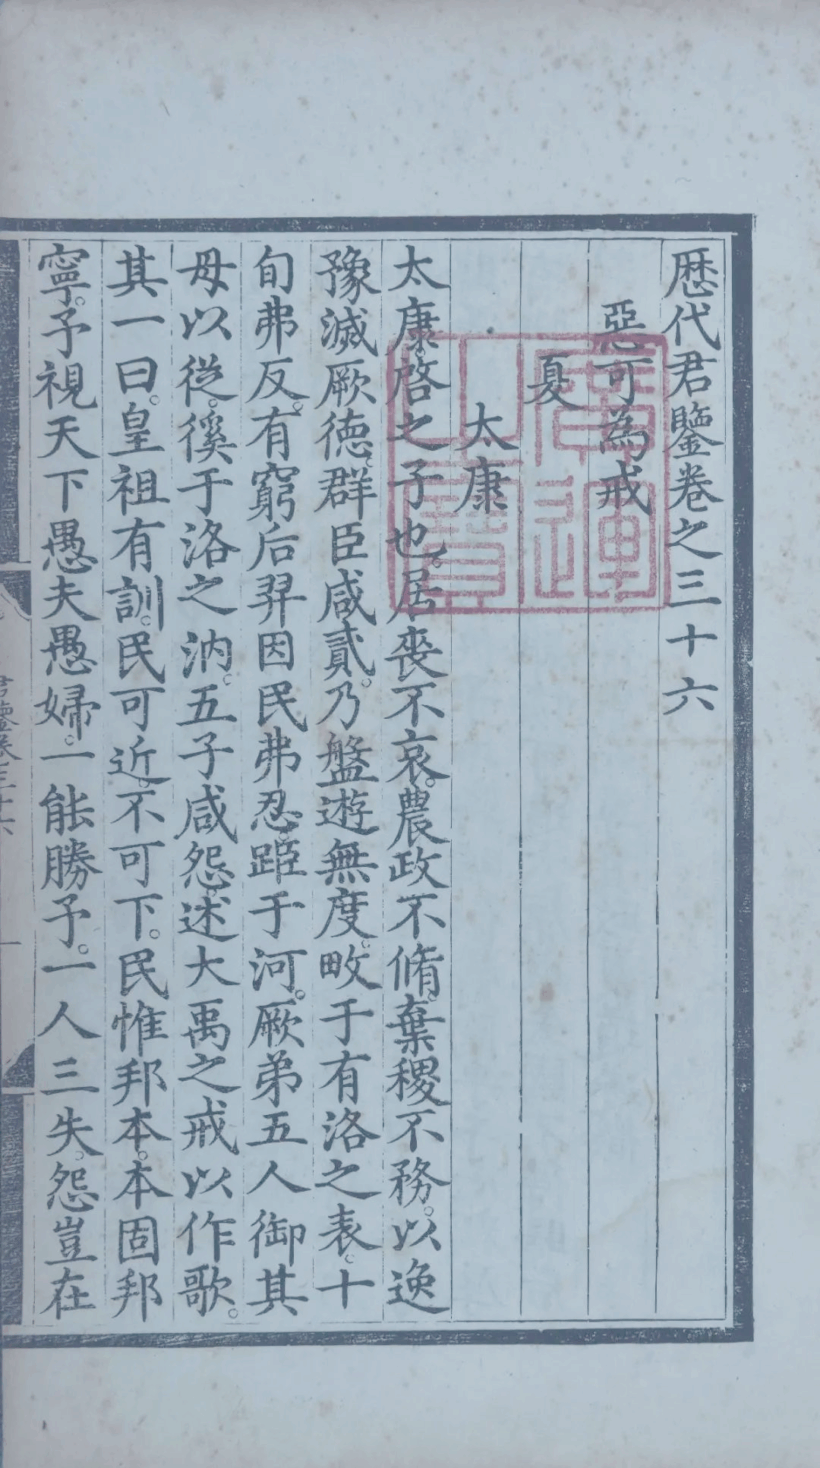 歴代君鑒卷之三十六
惡可為戒
夏
太康
太康啓之子也。居喪不哀。農政不脩。棄稷不務。以逸
豫滅厥德。群臣咸貳。乃盤遊無度。畋于有洛之表。十
旬弗反。有窮后羿因民弗忍。距于河。厥弟五人御其
母以從。徯于洛之汭。五子咸怨。述大禹之戒以作歌。
其一曰。皇祖有訓。民可近。不可下。民惟邦本。本固邦
寧。予視天下愚夫愚婦。一能勝予。一人三失。怨豈在
君鑒卷三十六